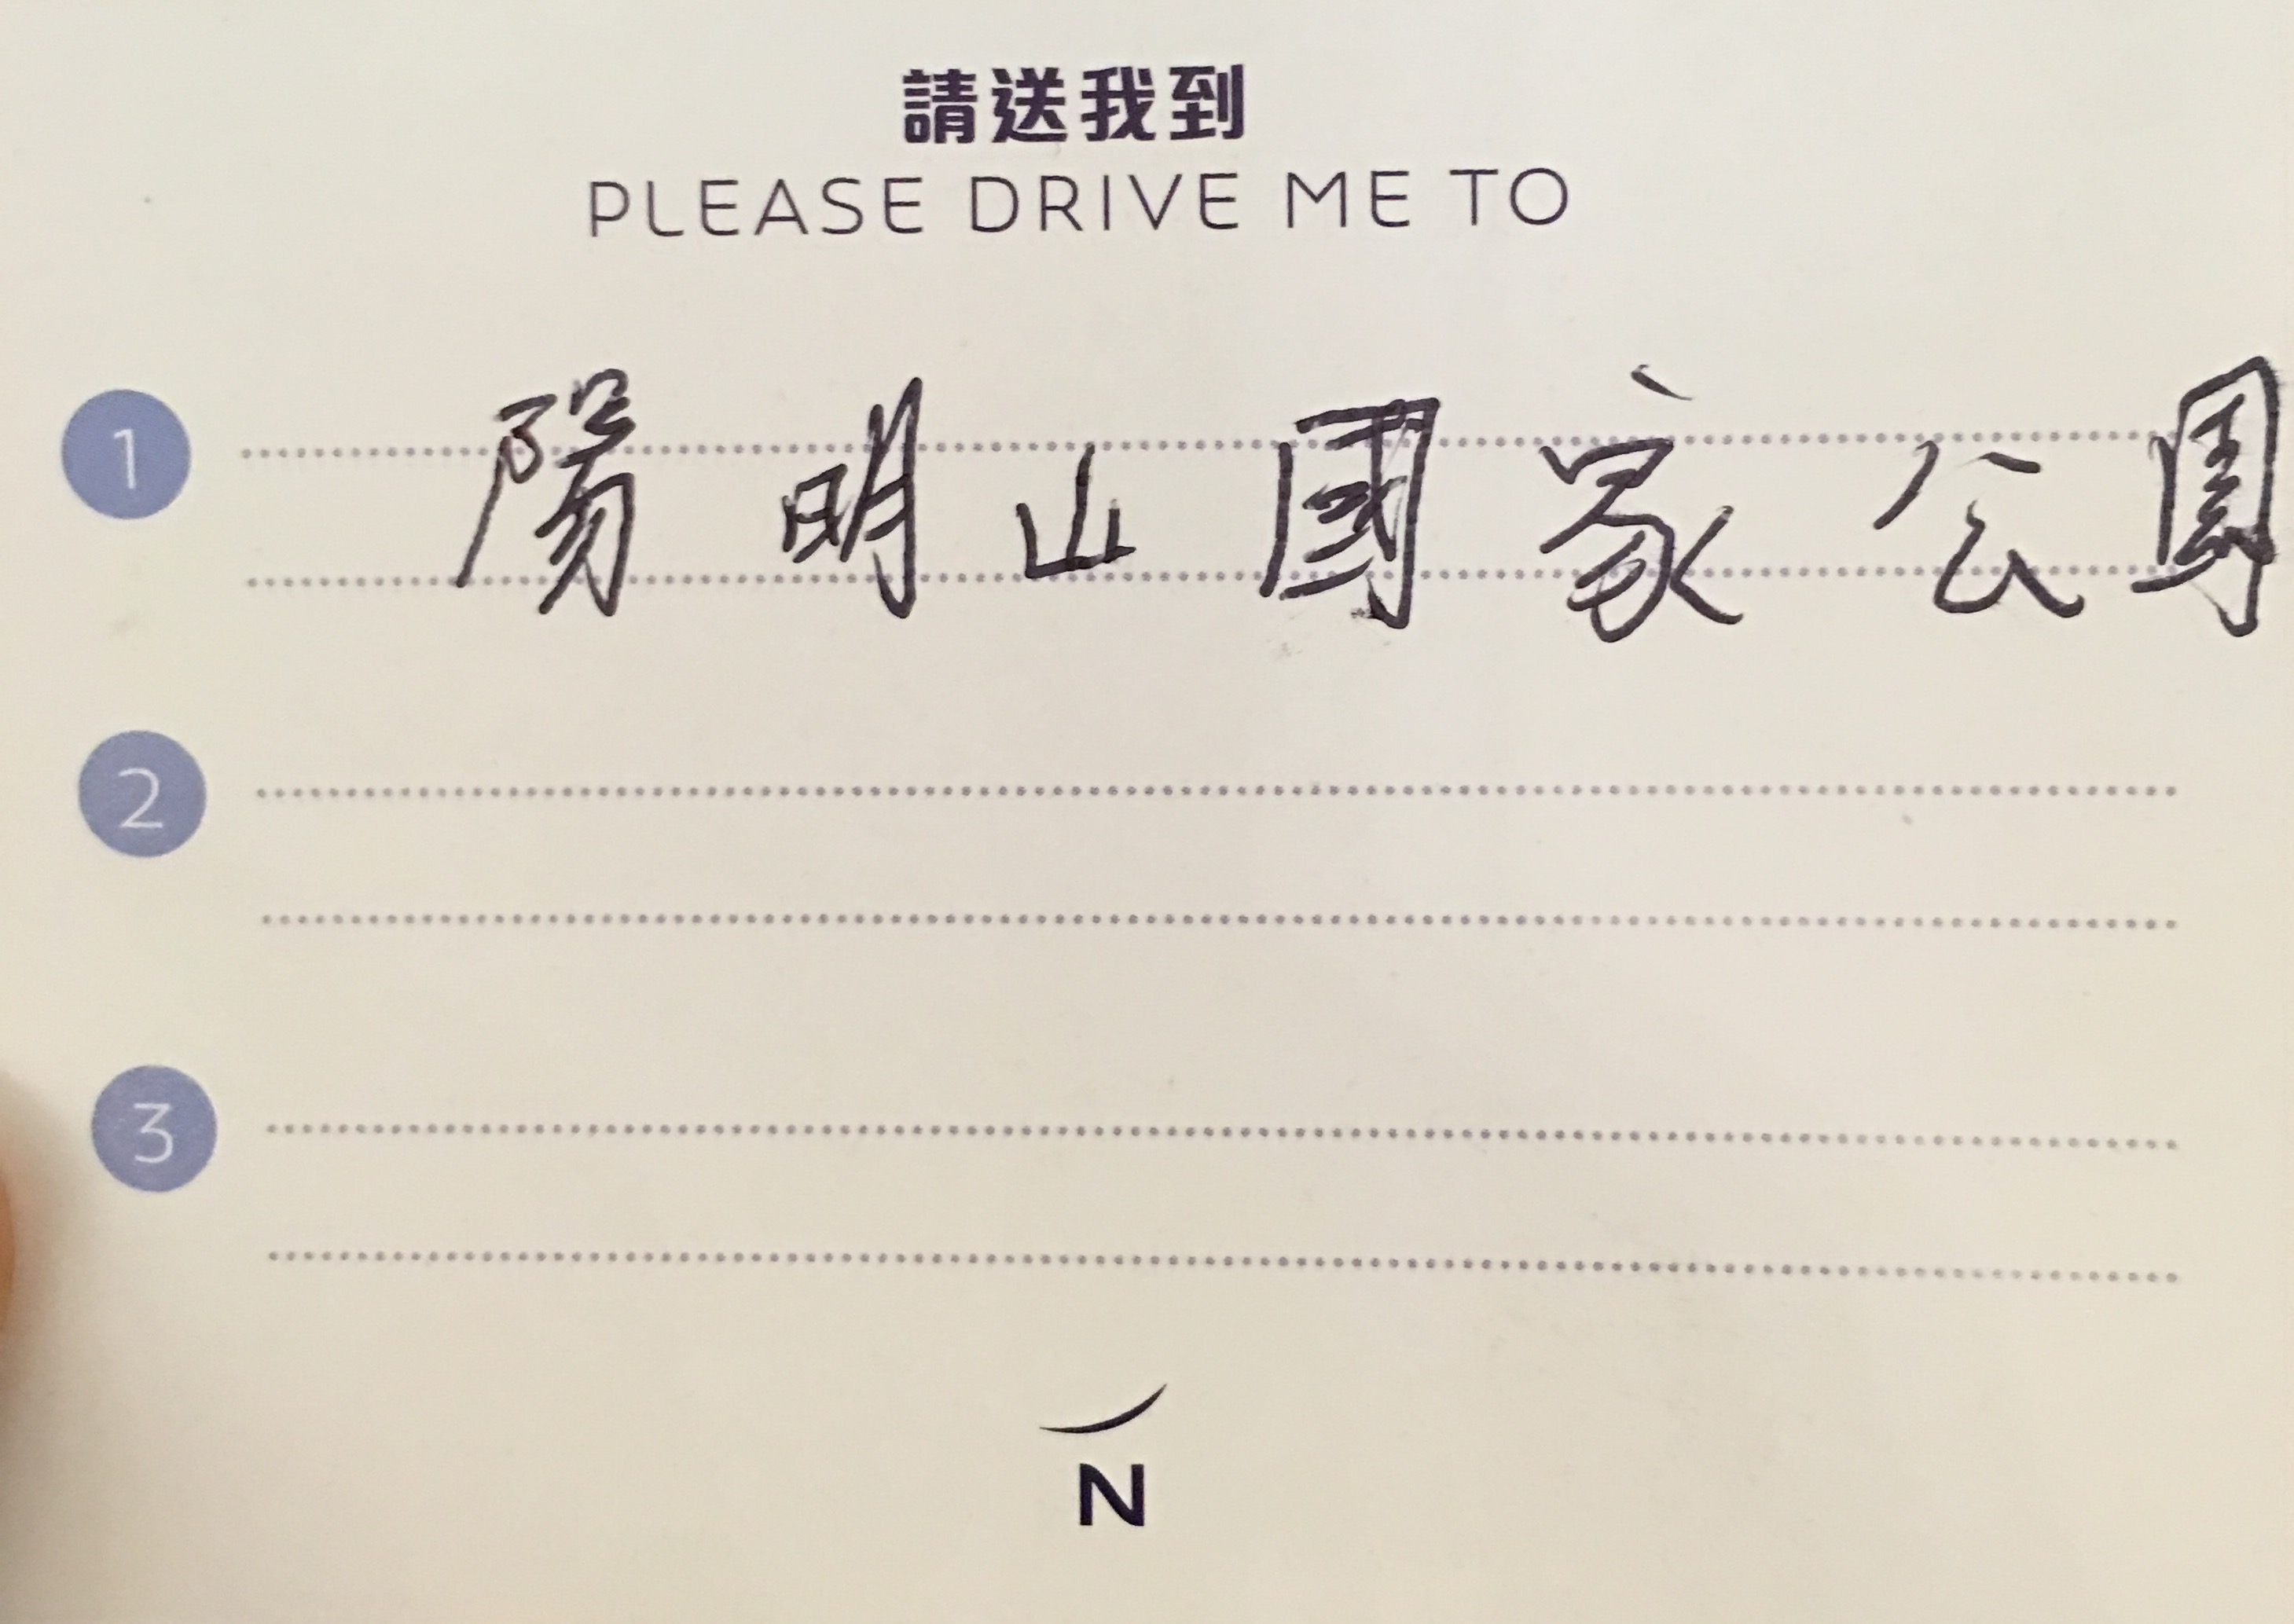 請送我到
PLEASE DRIVE ME TO
1 陽明山國家公園
2
3
N